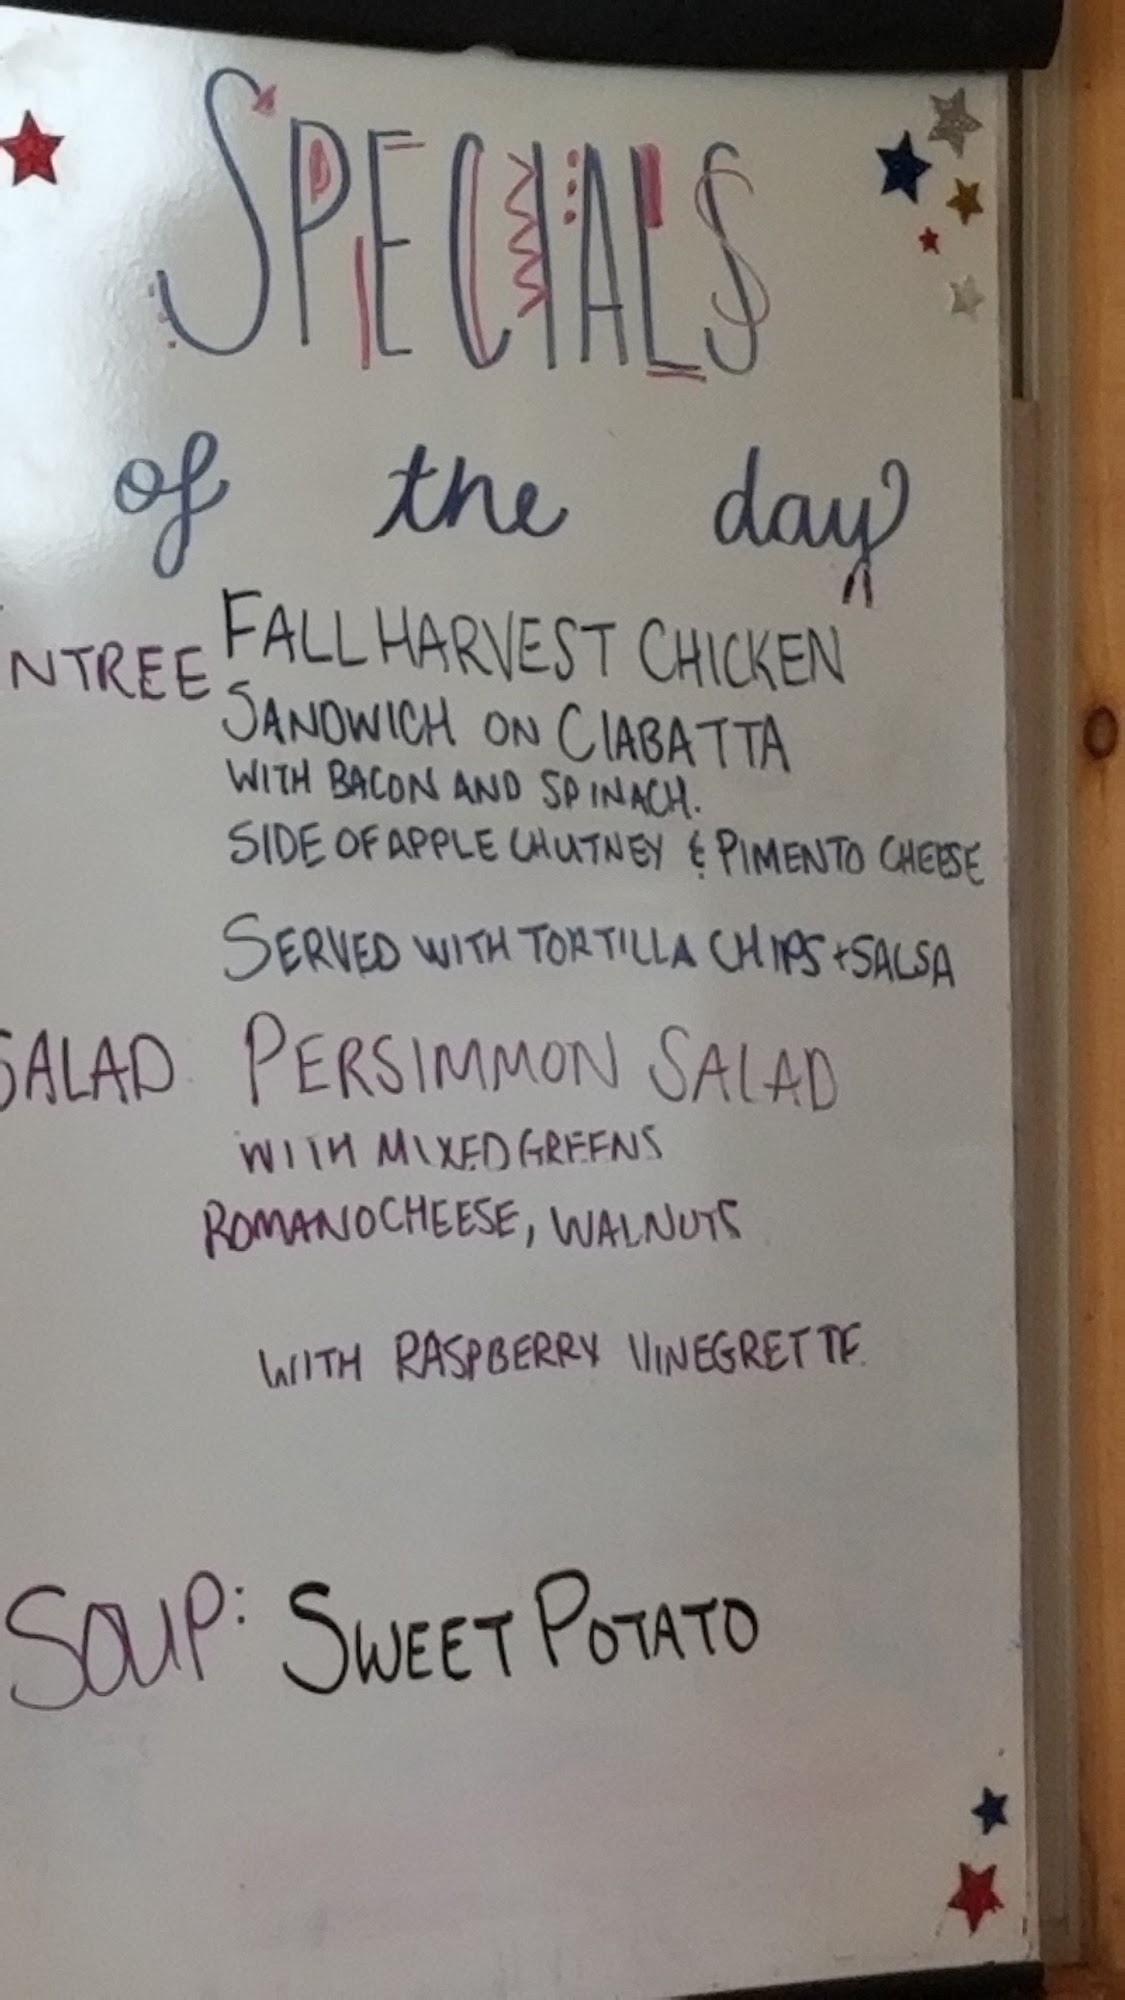 SPECIALS
of the day
NTREE FALL HARVEST CHICKEN
SANDWICH ON CIABATTA
WITH BACON AND SPINACH.
SIDE OF APPLE CHUTNEY & PIMENTO CHEESE
SERVED WITH TORTILLA CHIPS + SALSA
SALAD PERSIMMON SALAD
WITH MIXED GREENS
ROMANO CHEESE, WALNUTS
WITH RASPBERRY VINEGRETTE
SOUP: SWEET POTATO